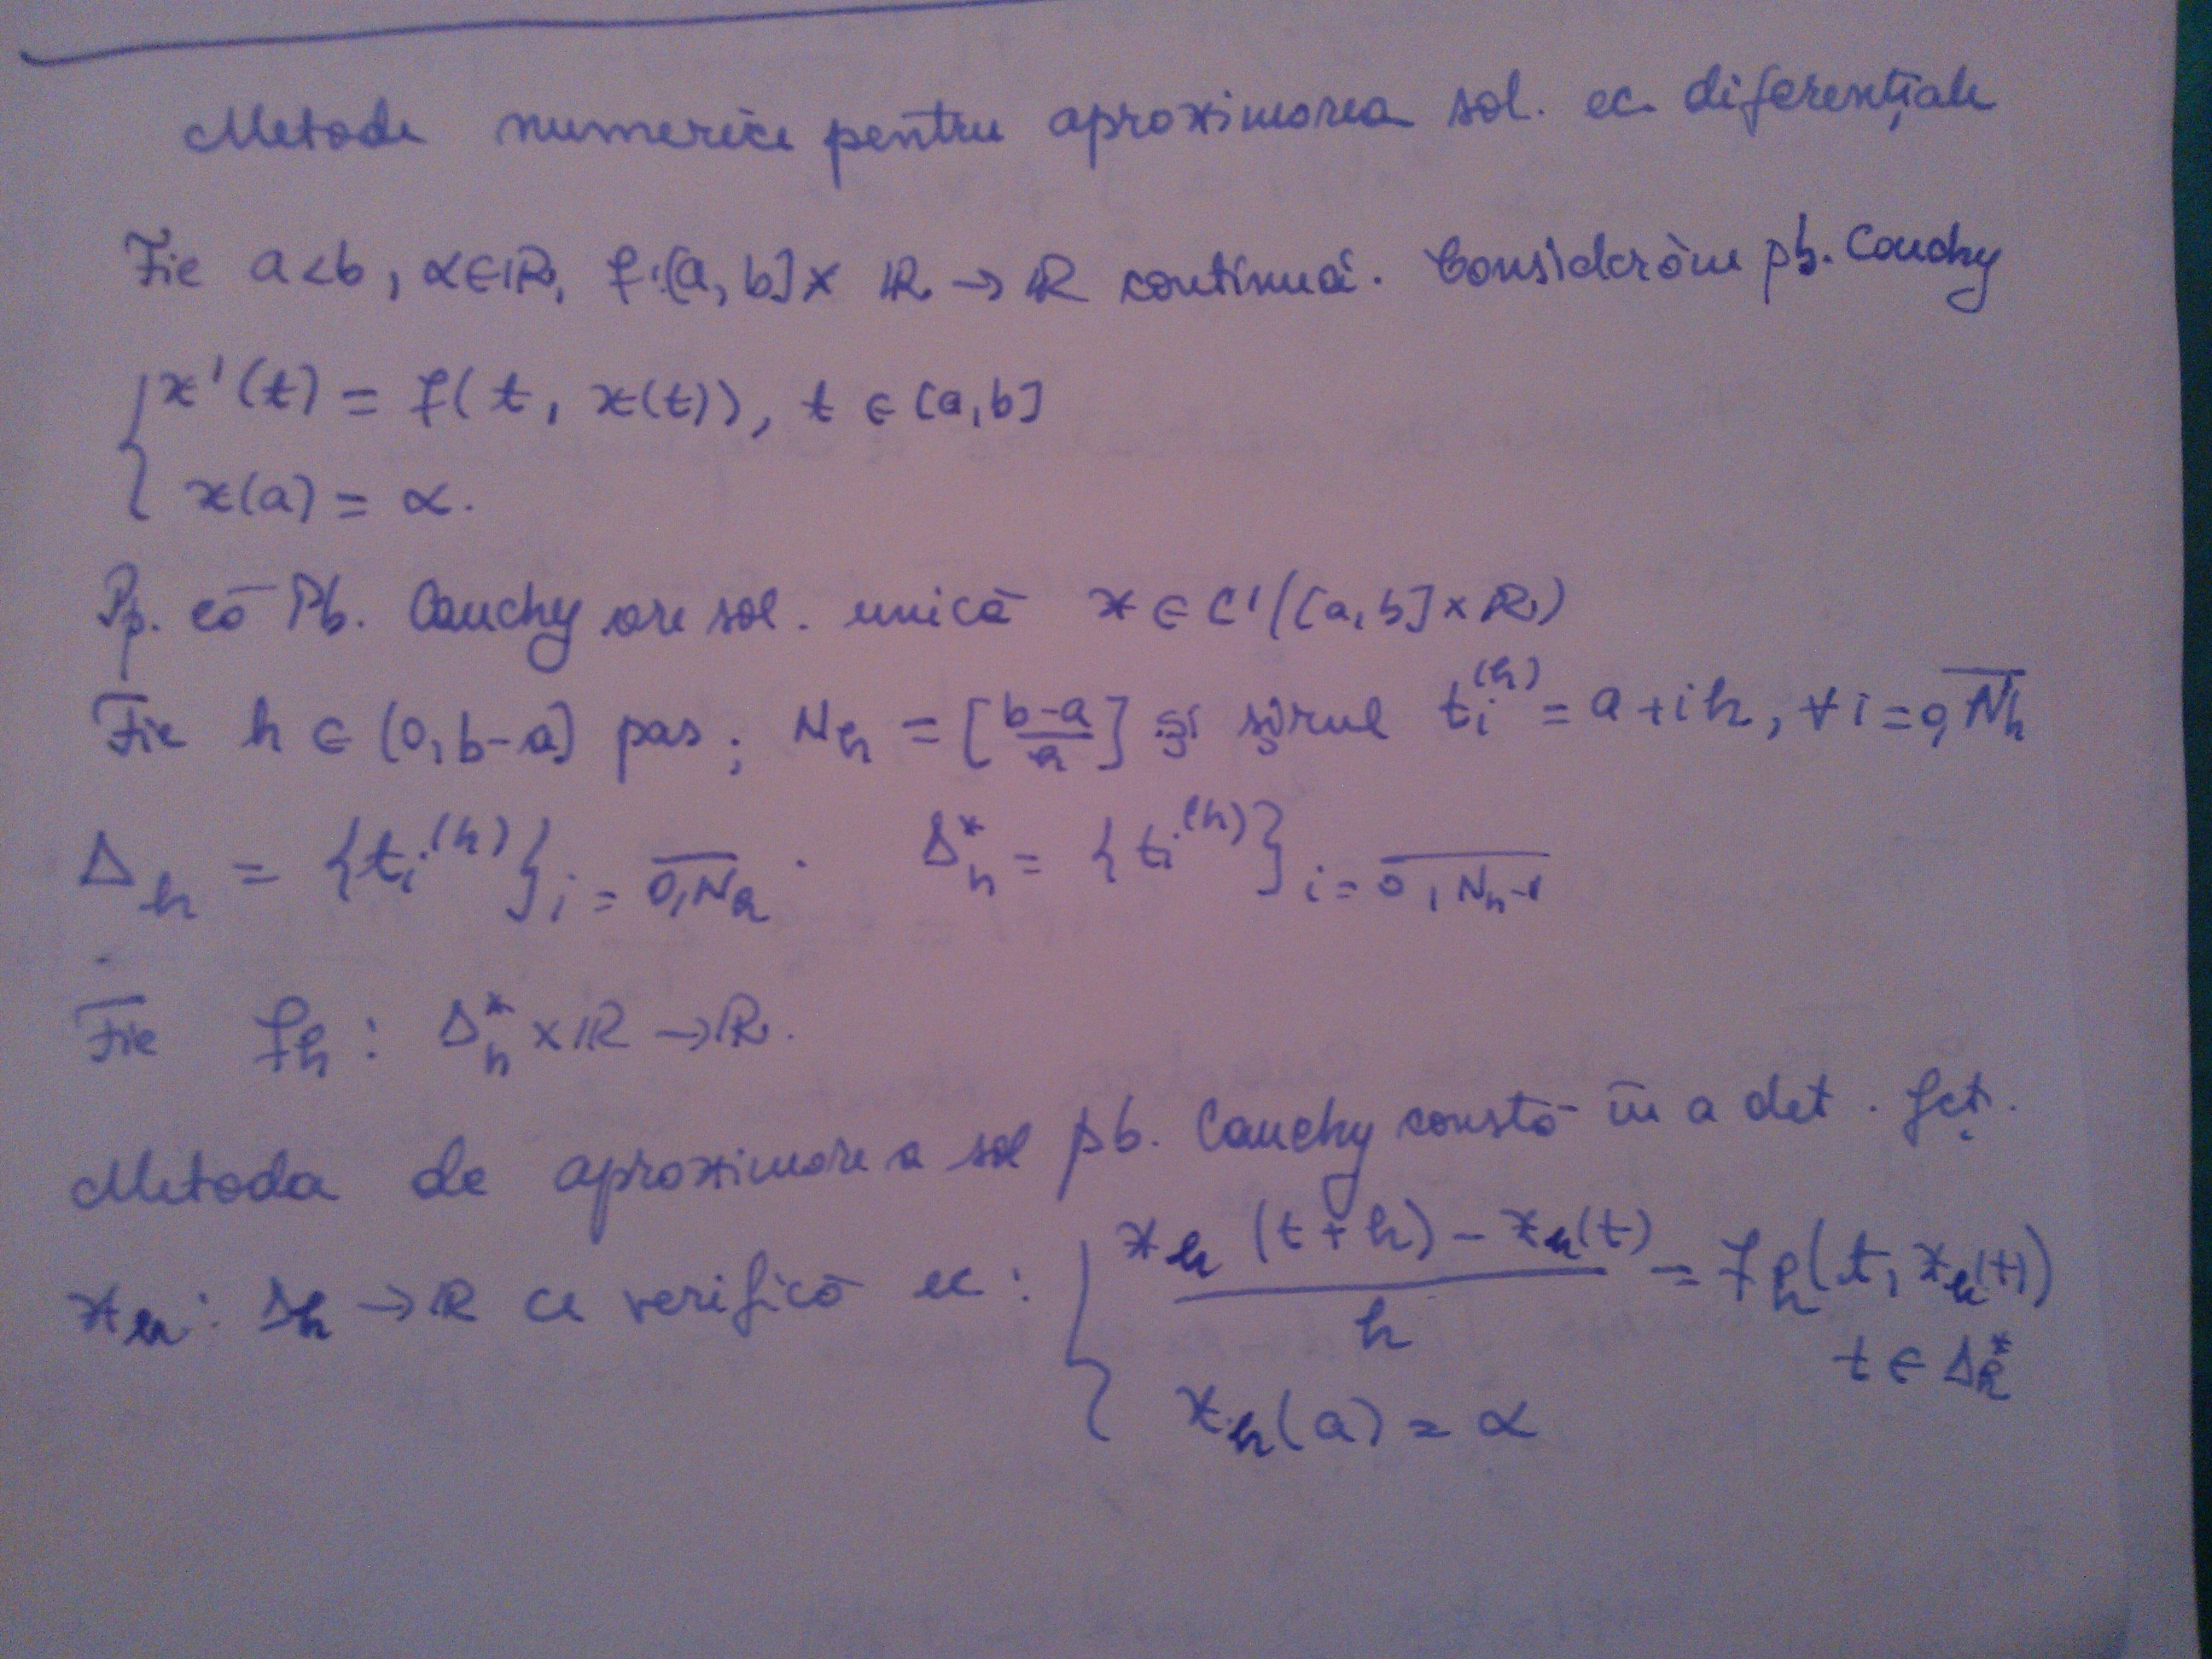 Metode numerice pentru aproximarea sol. ec. diferențiale
Fie a<b, α∈ℝ, f:[a,b]×ℝ→ℝ continuă. Considerăm pb. Cauchy
{ x'(t) = f(t, x(t)), t ∈ [a,b]
x(a) = α.
Pp. că Pb. Cauchy are sol. unică x ∈ C¹([a,b]×ℝ)
Fie h ∈ (0, b-a) pas; N_h = [(b-a)/h] și șirul t_i^(h) = a+ih, ∀i=0,N_h
Δ_h = {t_i^(h)}_i=0,N_h. Δ*_h = {t_i^(h)}_i=0,N_h-1
Fie f_h: Δ*_h×ℝ→ℝ.
Metoda de aproximare a sol pb. Cauchy constă în a det. fcț.
x_h: Δ_h→ℝ ce verifică ec: { (x_h(t+h) - x_h(t))/h = f_h(t, x_h(t))
t ∈ Δ*_h
x_h(a) = α